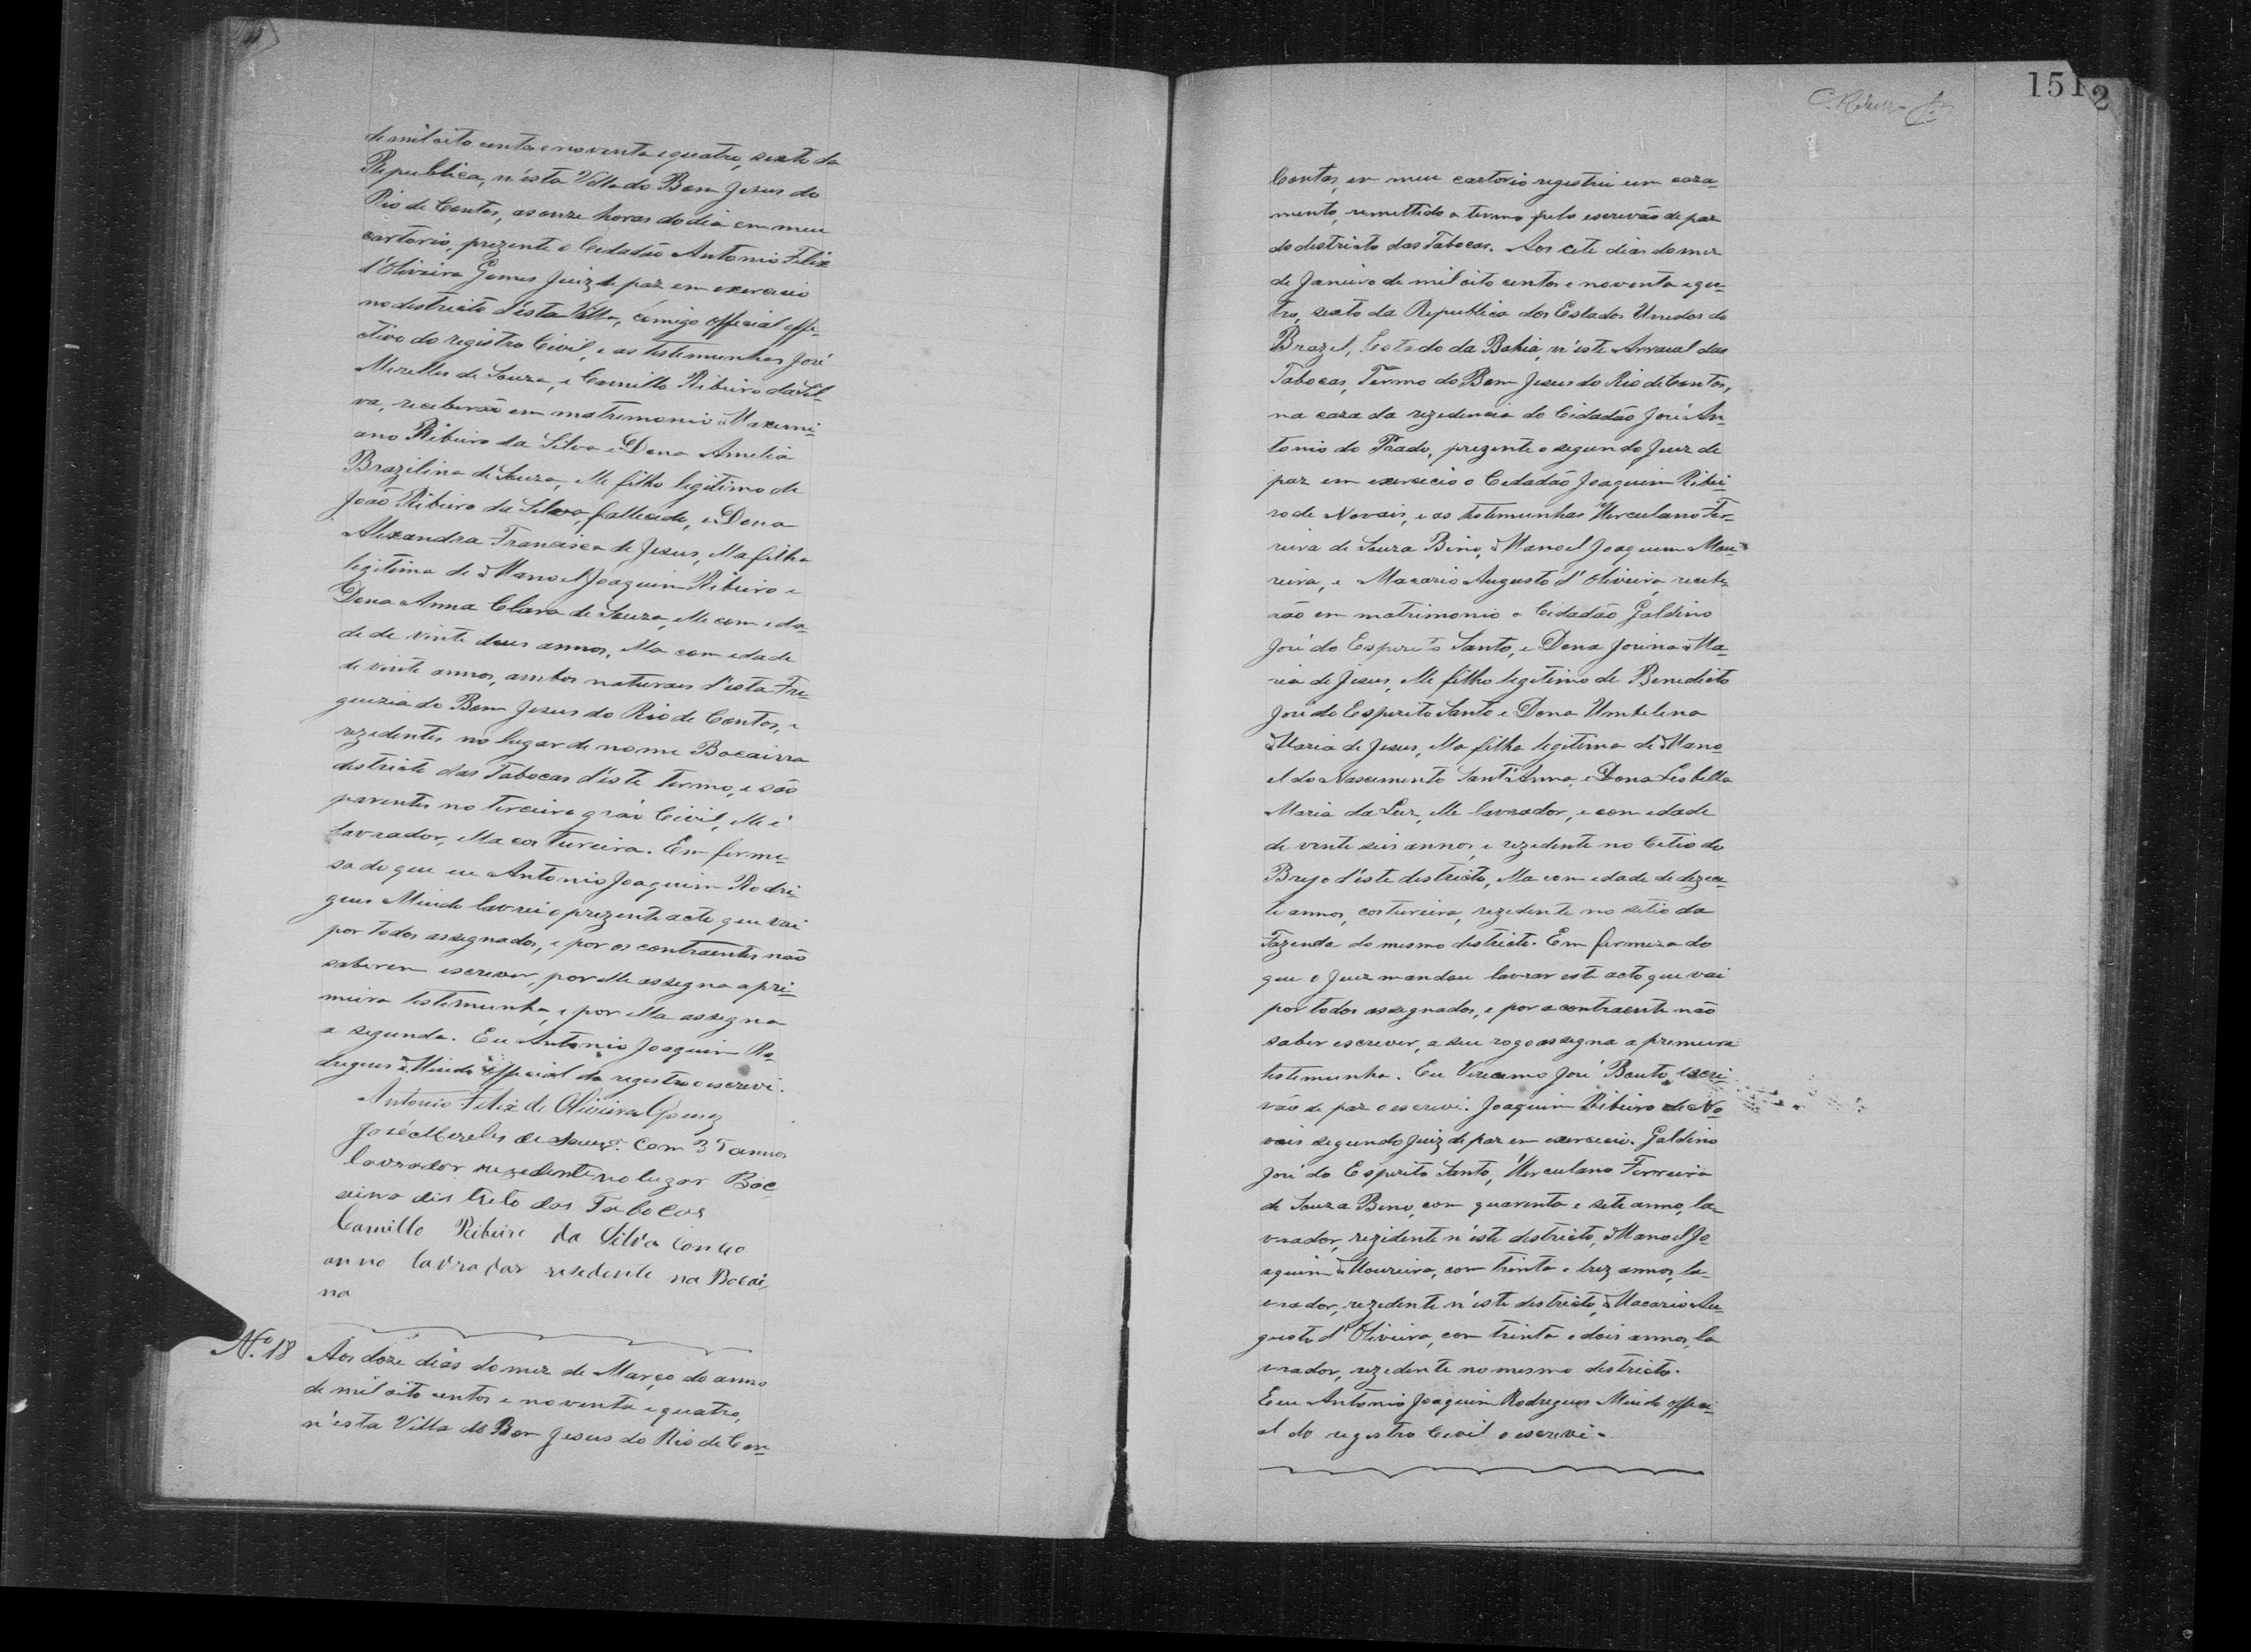 de mil oito centos e noventa e quatro, sexto da
Republica, n'esta Villa do Bom Jesus do
Rio de Contas, as onze horas do dia em meu
cartorio, prezente o Cidadão Antonio Felix
d'Oliveira Gomes Juiz de paz em exercicio
no destricto d'esta Villa, cómigo official effe-
ctivo do registro Civil, e as testemunhas José
Merelles de Souza, e Camillo Ribeiro da Sil-
va, receberão em matrimonio Maximi-
ano Ribeiro da Silva e Dona Amelia
Brazilina de Souza, elle filho legitimo de
João Ribeiro da Silva, fallecido, e Dona
Alexandra Francisca de Jesus, ella filha
legitima de Manoel Joaquim Ribeiro e
Dona Anna Clara de Souza, elle com eda-
de de vinte dous annos, ella com edade
de vinte annos, ambos naturaes d'esta Fre-
guezia do Bom Jesus do Rio de Contas, e
rezedentes no lugar de nome Bocaina
destricto das Tabocas d'éste termo, e são
parentes no terceiro gráo Civil, elle é
lavrador, ella costureira. Em firme-
sa do que eu Antonio Joaquim Rodri-
gues Mindo lavrei o prezente acto que vai
por todos assegnados, e por os contraentes não
saberem escrever, por elle assegna a pri-
meira testemunha, e por ella assegna
a segunda. Eu Antonio Joaquim Ro-
dregues Mindo official do registro o escrevi.
Antonio Felix de Oliveira Gomes
José Merelles de Souza. Com 35 annos
lavrador rezedente no lugar Boc
aina distreto das Tabocas
Camillo Ribeiro da Silva com
anno lavrador residente na Bocai,
na
No. 18 Aos doze dias do mez de Março do anno
de mil oito centos e noventa e quatro,
n'esta Villa do Bom Jesus do Rio de Con-
151
2
Contas, em meu cartorio registrei um caza-
mento, remettido a termo pelo escrevão de paz
do destricto das Tabocas. Aos cete dias do mez
de Janeiro de mil oito centos e noventa e qua-
tro, sexto da Republica dos Estados Unedos do
Brazel, Estado da Bahia, n'este Arraial das
Tabocas, Termo do Bom Jesus do Rio de Contas,
na caza da rezedencia do Cidadão José An-
tonio do Prado, prezente o segundo Juiz de
paz em exercicio o Cedadão Joaquim Ribei-
ro de Novais, e as testemunhas Herculano Fer-
reira de Souza Bino, Manoel Joaquim Mou-
reira, e Macario Augusto d'Oliveira, recebe-
rão em matrimonio o Cedadão Galdino
José do Espirito Santo, e Dona Jovina Ma-
ria de Jesus, elle filho legitimo de Benedicto
José do Esperito Santo e Dona Umbelina
Maria de Jesus, ella filha legitima de Mano-
el do Nascimento Sant'Anna, e Dona Lesbella
Maria da Luz, elle lavrador, e com edade
de vinte seis annos, e rezedente no Citio do
Brejo d'éste destricto, ella com edade de dizece-
te annos, costureira, rezedente no setio da
Fazenda do mesmo destricto. Em firmeza do
que o Juiz mandou lavrar este acto que vai
por todos assegnados, e por a contraente não
saber escrever, a seu rogo assegna a premeira
testemunha. Eu José Bento, escri-
vão de paz o escrevi. Joaquim Ribeiro de No-
vais segundo Juiz de paz em exercicio. Galdino
José do Esperito Santo, Herculano Ferreira
de Souza Bino, com quarenta e sete anno, la-
vrador, rezidente n'este destricto, Manoel Jo-
aquim Moureira, com trinta e trez annos, la-
vrador, rezedente n'este destricto, Macario Au-
gusto d'Oliveira, com trinta e dois annos, la-
vrador, rezedente no mesmo destricto.
E eu Antonio Joaquim Rodregues Mindo offici-
al do registro Cevil o escrevi.